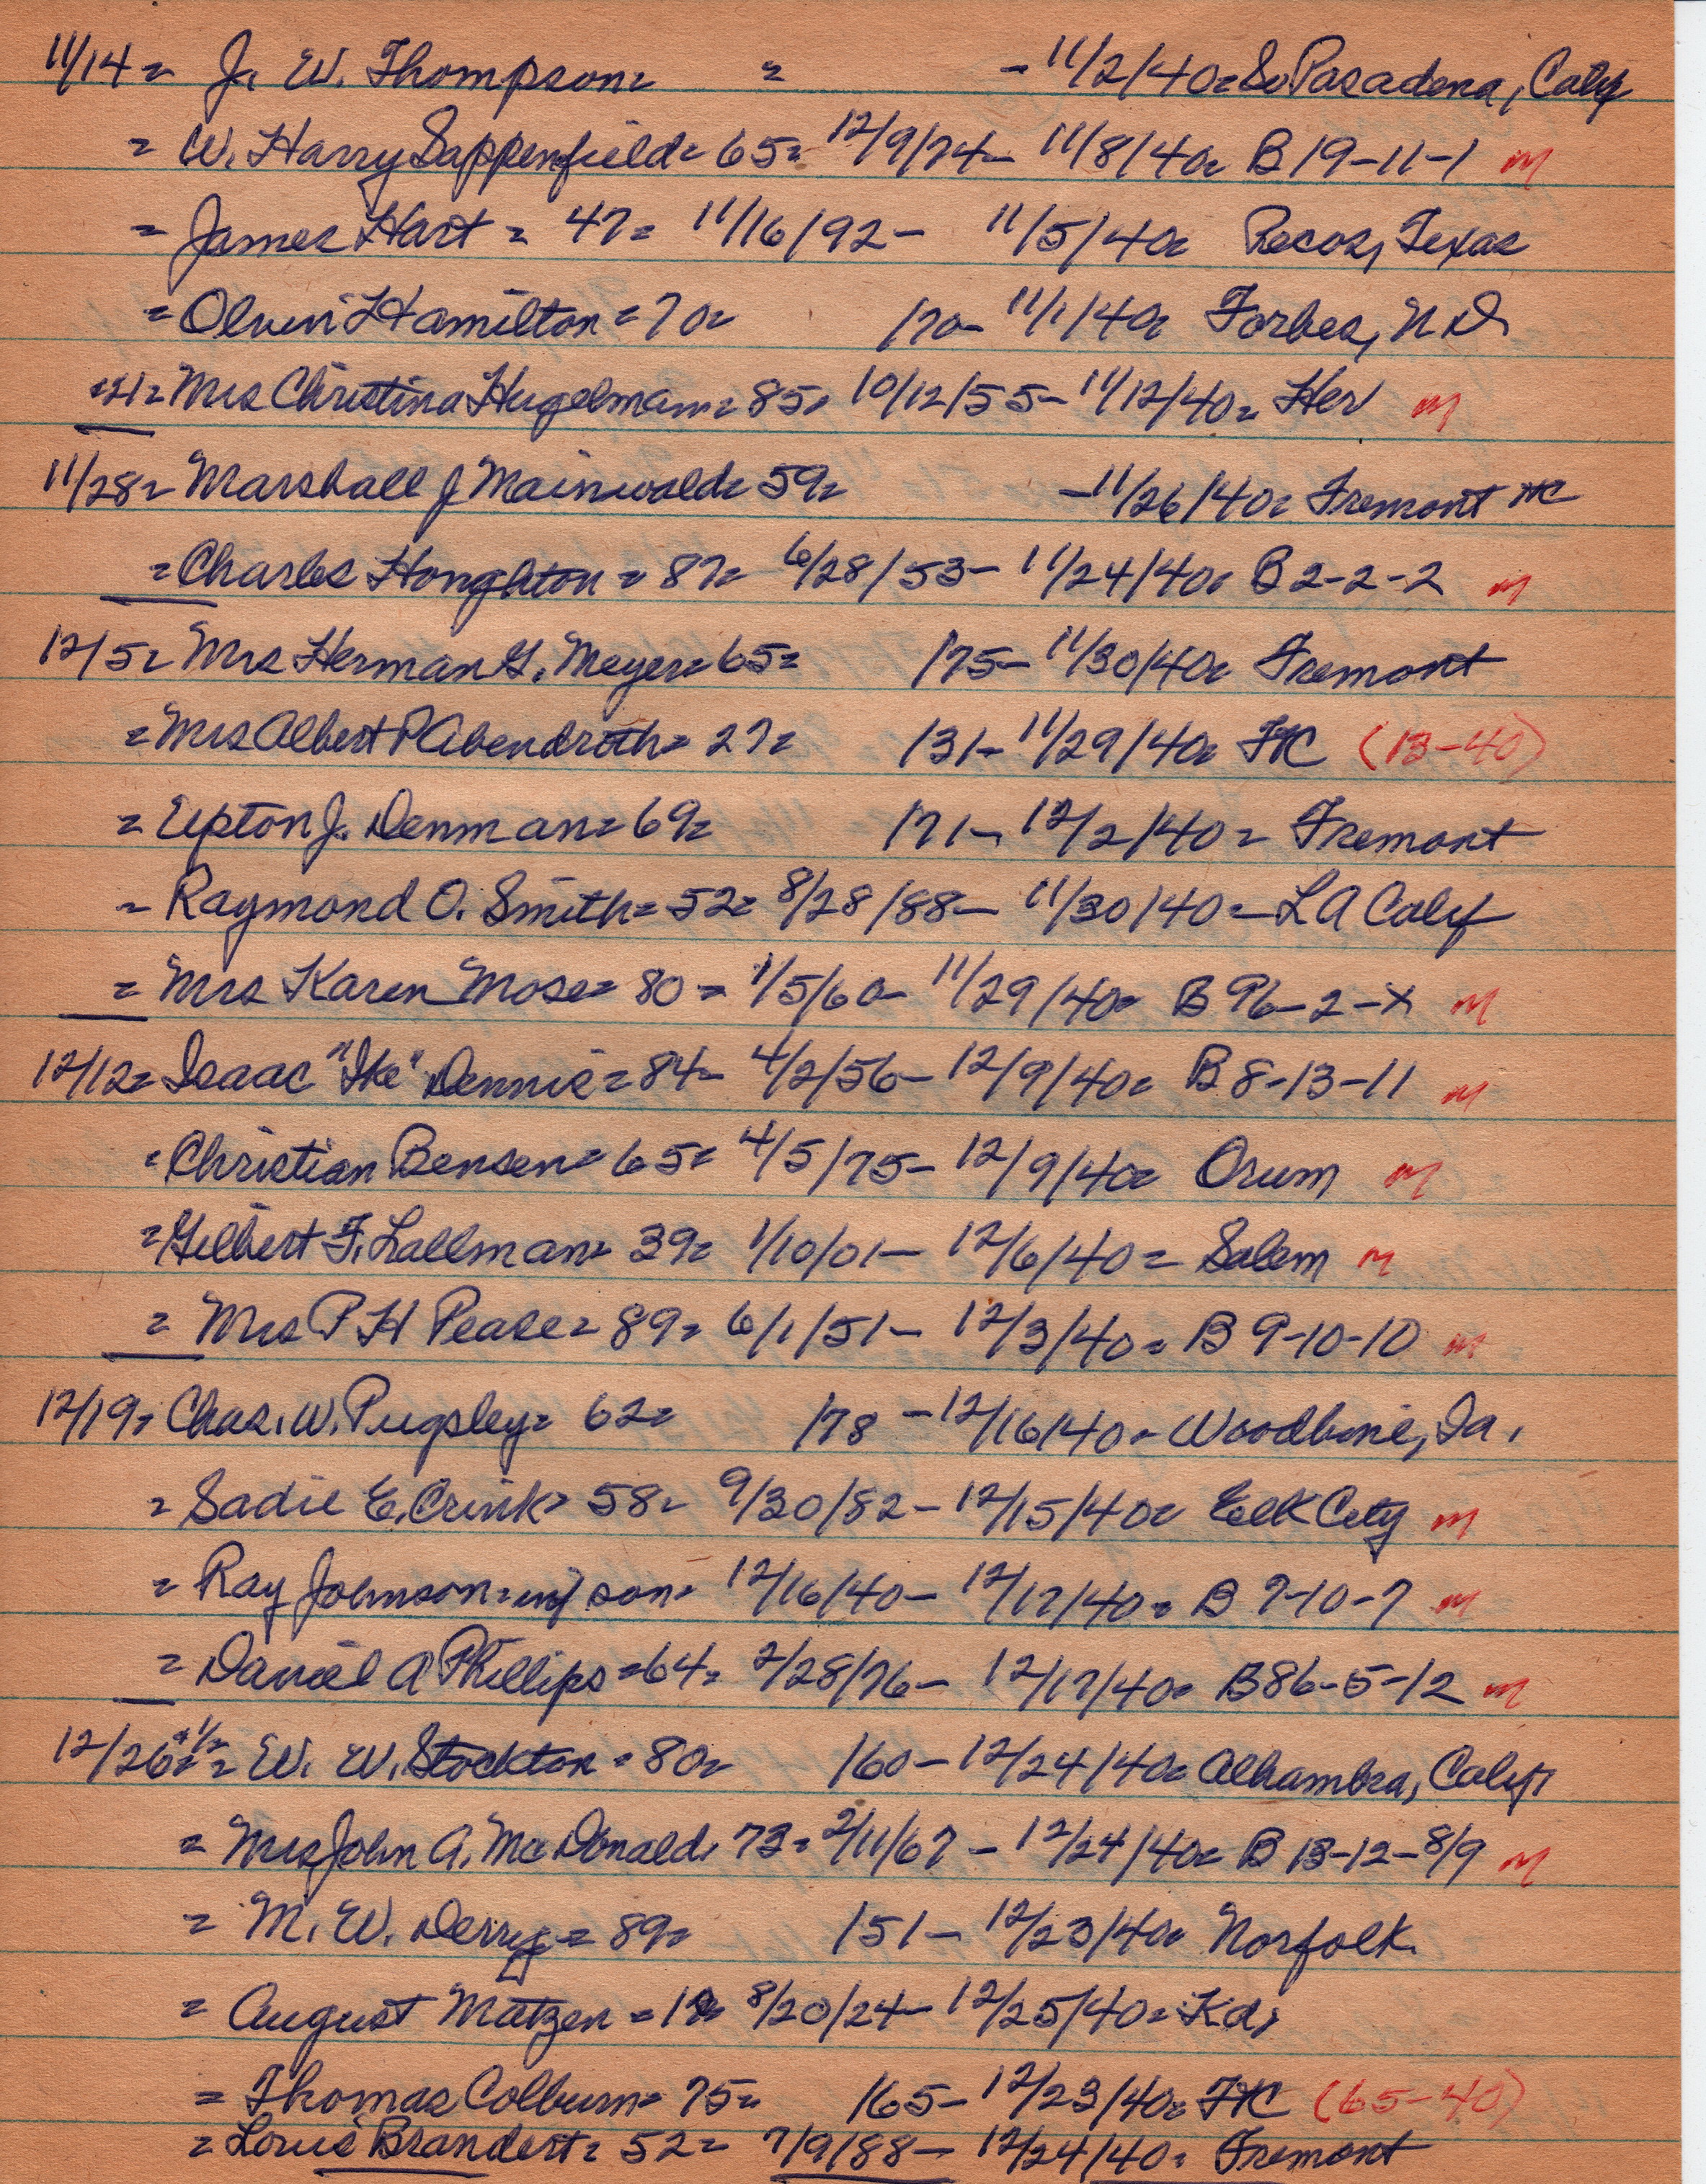 11/14 = J. W. Thompson = = - 11/2/40 = So Pasadena, Calif
= W. Harry Sappenfield = 65 = 12/9/74 - 11/8/40 = B 19-11-1 m
= James Hart = 47 = 11/16/92 - 11/5/40 = Pecos, Texas
= Olwin Hamilton = 70 = /70 - 11/1/40 = Forbes, N D.
= 21 = Mrs Christina Hugelman = 85 = 10/12/55 - 11/12/40 = Her m
11/28 = Marshall J Mainwald = 59 = - 11/26/40 = Fremont
= Charles Honghton = 87 = 6/28/53 - 11/24/40 = B 2-2-2 m
12/5 = Mrs Herman G. Meyer = 65 = /75 - 11/30/40 = Fremont
= Mrs Albert P Abendroth = 27 = /31 - 11/29/40 = FC (13-40)
= Upton J. Denman = 69 = /71 - 12/2/40 = Fremont
= Raymond O. Smith = 52 = 8/28/88 - 11/30/40 = L A Calif
= Mrs Karen Mose = 80 = 1/5/60 - 11/29/40 = B 96-2-X m
12/12 = Isaac "Ike" Dennis = 84 - 4/2/56 - 12/9/40 = B 8-13-11 m
= Christian Bensen = 65 = 4/5/75 - 12/9/40 = Orum m
= Gilbert F. Lallman = 39 = 1/10/01 - 12/6/40 = Salem m
= Mrs P H Pease = 89 = 6/1/51 - 12/3/40 = B 9-10-10 m
12/19 = Chas. W. Pugsley = 62 = /78 - 12/16/40 = Woodbine, Ia.
= Sadie E. Crink = 58 = 9/30/82 - 12/15/40 = Elk City m
= Ray Johnson = inf son = 12/16/40 - 12/17/40 = B 7-10-7 m
= Daniel A Phillips = 64 = 2/28/76 - 12/17/40 = B 86-5-12 m
12/26 & 1/2 = W. W. Stockton = 80 = /60 - 12/24/40 = Alhambra, Calif.
= Mrs John A. McDonald = 73 = 2/11/67 - 12/24/40 = B 13-12-8/9 m
= M. W. Derry = 89 = /51 - 12/23/40 = Norfolk.
= August Matzen = 8/20/24 - 12/25/40 = Kd,
= Thomas Colburn = 75 = /65 - 12/23/40 = FC (65-40)
= Louis Brandert = 52 = 7/9/88 - 12/24/40 = Fremont